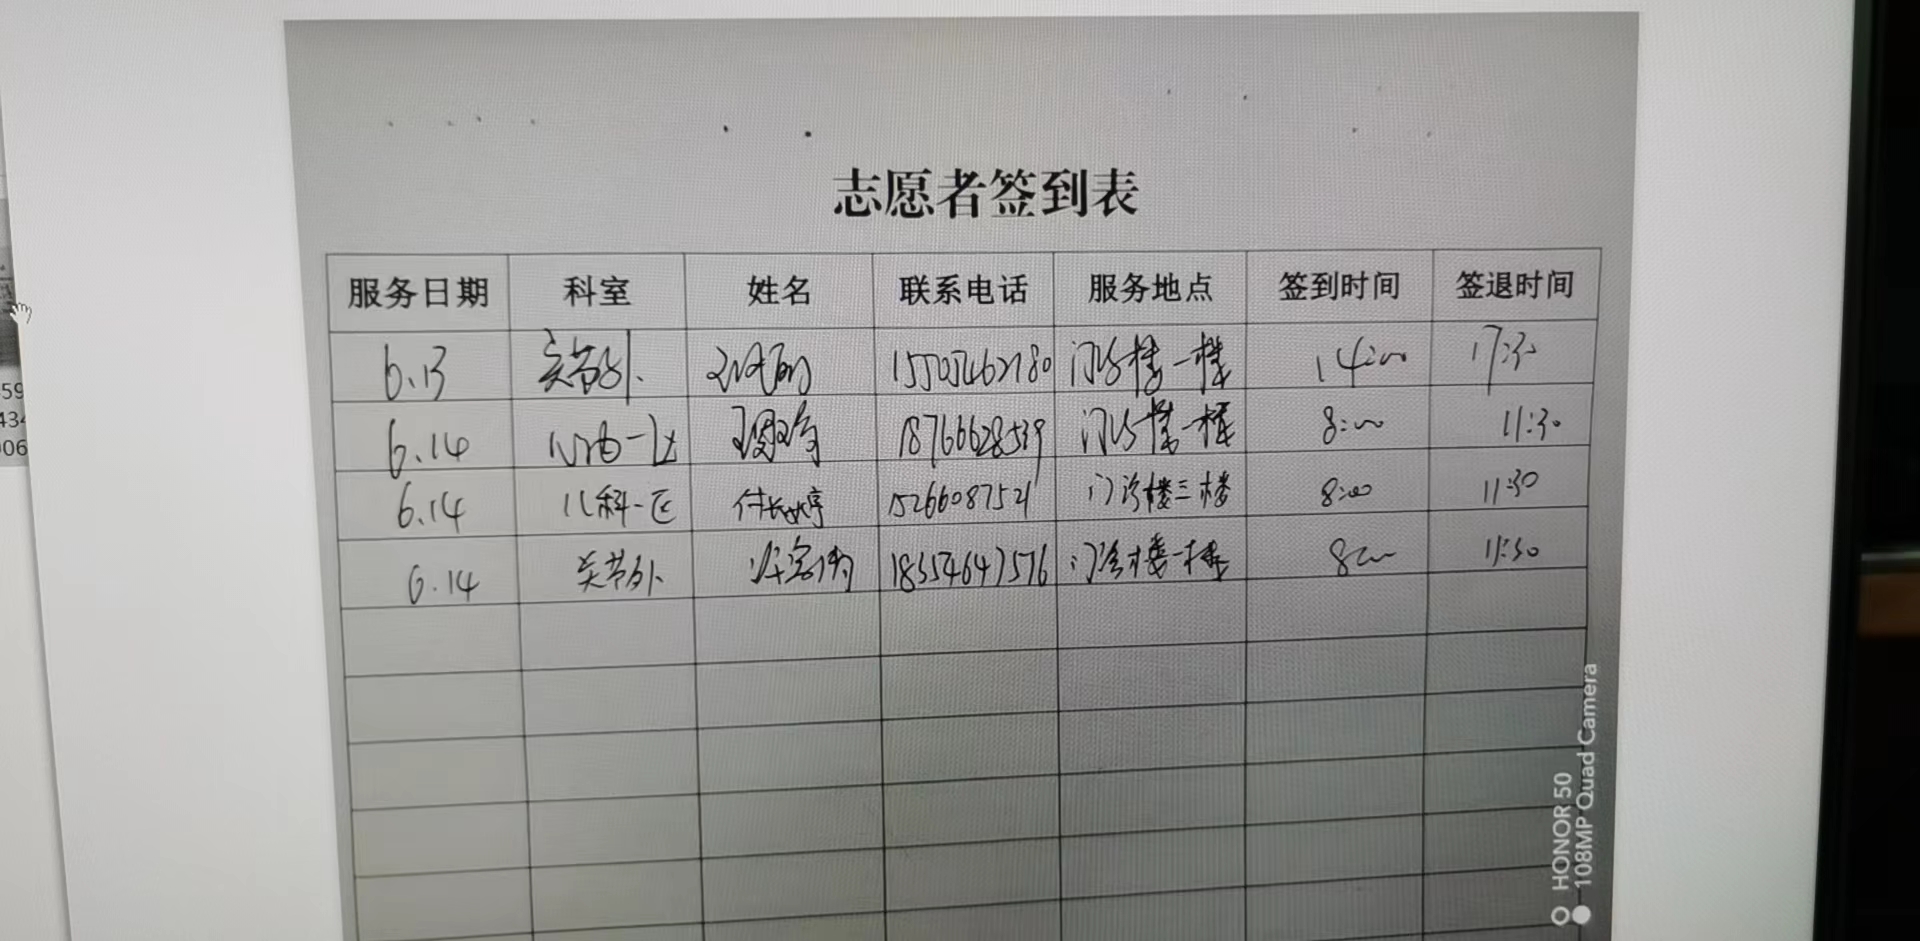 志愿者签到表
服务日期 科室 姓名 联系电话 服务地点 签到时间 签退时间
6.13 关节外 15505462780 门诊楼一楼 14:00 17:30
6.14 一区 18766628539 门诊楼一楼 8:00 11:30
6.14 儿科一区 付长婷 15266087521 门诊楼三楼 8:00 11:30
6.14 关节外 18354647576 门诊楼一楼 8:00 11:30
59
434
006
HONOR 50
108MP Quad Camera